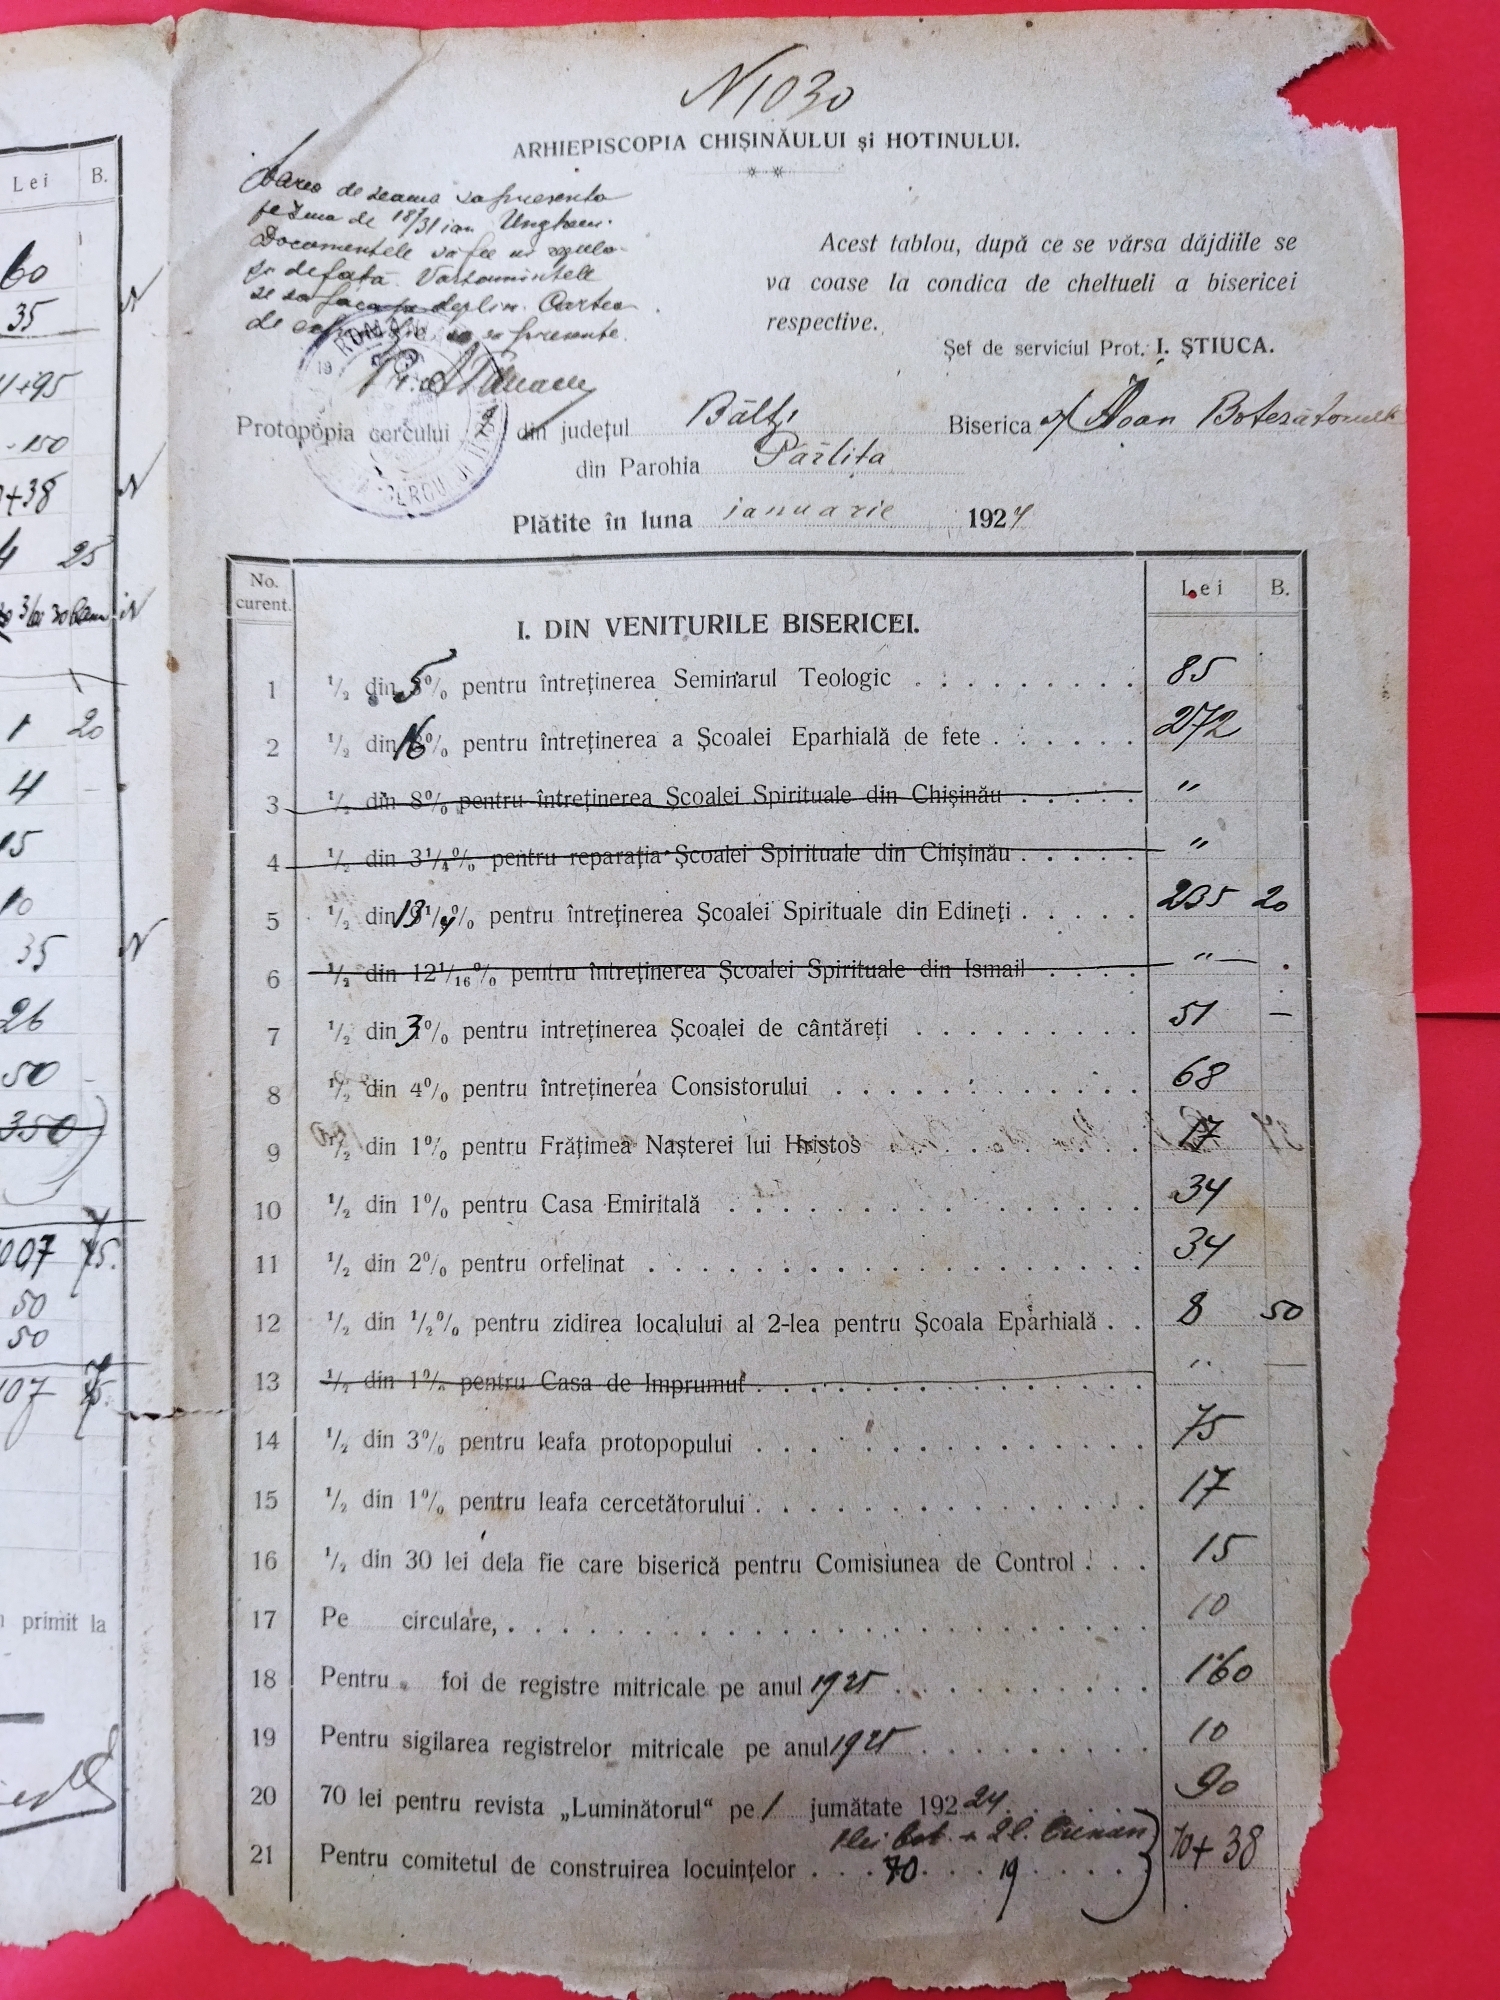 N 1030
ARHIEPISCOPIA CHIȘINĂULUI și HOTINULUI.
de seama sa presenta
de 18/31 ian. Ungheni.
Documentele să fie
și defață.
se sa faca deplin. Cartea
de sa presente.
Acest tablou, după ce se vărsa dăjdiile se
va coase la condica de cheltueli a bisericei
respective.
Șef de serviciul Prot. I. ȘTIUCA.
Protopopia cercului din județul Bălți Biserica sf Ioan Botezătorul
din Parohia Pârlița
Plătite în luna ianuarie 1924
No. curent. Lei B.
I. DIN VENITURILE BISERICEI.
1 ½ din 5% pentru întreținerea Seminarul Teologic 85
2 ½ din 16% pentru întreținerea a Școalei Eparhială de fete 272
3 ½ din 8% pentru întreținerea Școalei Spirituale din Chișinău "
4 ½ din 3¼% pentru reparația Școalei Spirituale din Chișinău "
5 ½ din 13 ¼% pentru întreținerea Școalei Spirituale din Edineți 235 20
6 ½ din 12 1/16% pentru întreținerea Școalei Spirituale din Ismail "
7 ½ din 3% pentru intreținerea Școalei de cântăreți 51 —
8 ½ din 4% pentru întreținerea Consistorului 68
9 ½ din 1% pentru Frățimea Nașterei lui Hristos 17
10 ½ din 1% pentru Casa Emiritală 34
11 ½ din 2% pentru orfelinat 34
12 ½ din ½% pentru zidirea localului al 2-lea pentru Școala Eparhială 8 50
13 ½ din 1% pentru Casa de Imprumut "
14 ½ din 3% pentru leafa protopopului 75
15 ½ din 1% pentru leafa cercetătorului 17
16 ½ din 30 lei dela fie care biserică pentru Comisiunea de Control 15
17 Pe circulare, 10
18 Pentru foi de registre mitricale pe anul 1925 160
19 Pentru sigilarea registrelor mitricale pe anul 1925 10
20 70 lei pentru revista „Luminătorul“ pe 1 jumătate 192 24 90
21 Pentru comitetul de construirea locuințelor 70 19 70+38
Lei B.
60
35
+95
150
+38
4 25
1 20
4 -
15
10
35
26
50 -
350
007 75.
50
50
107 75.
primit la